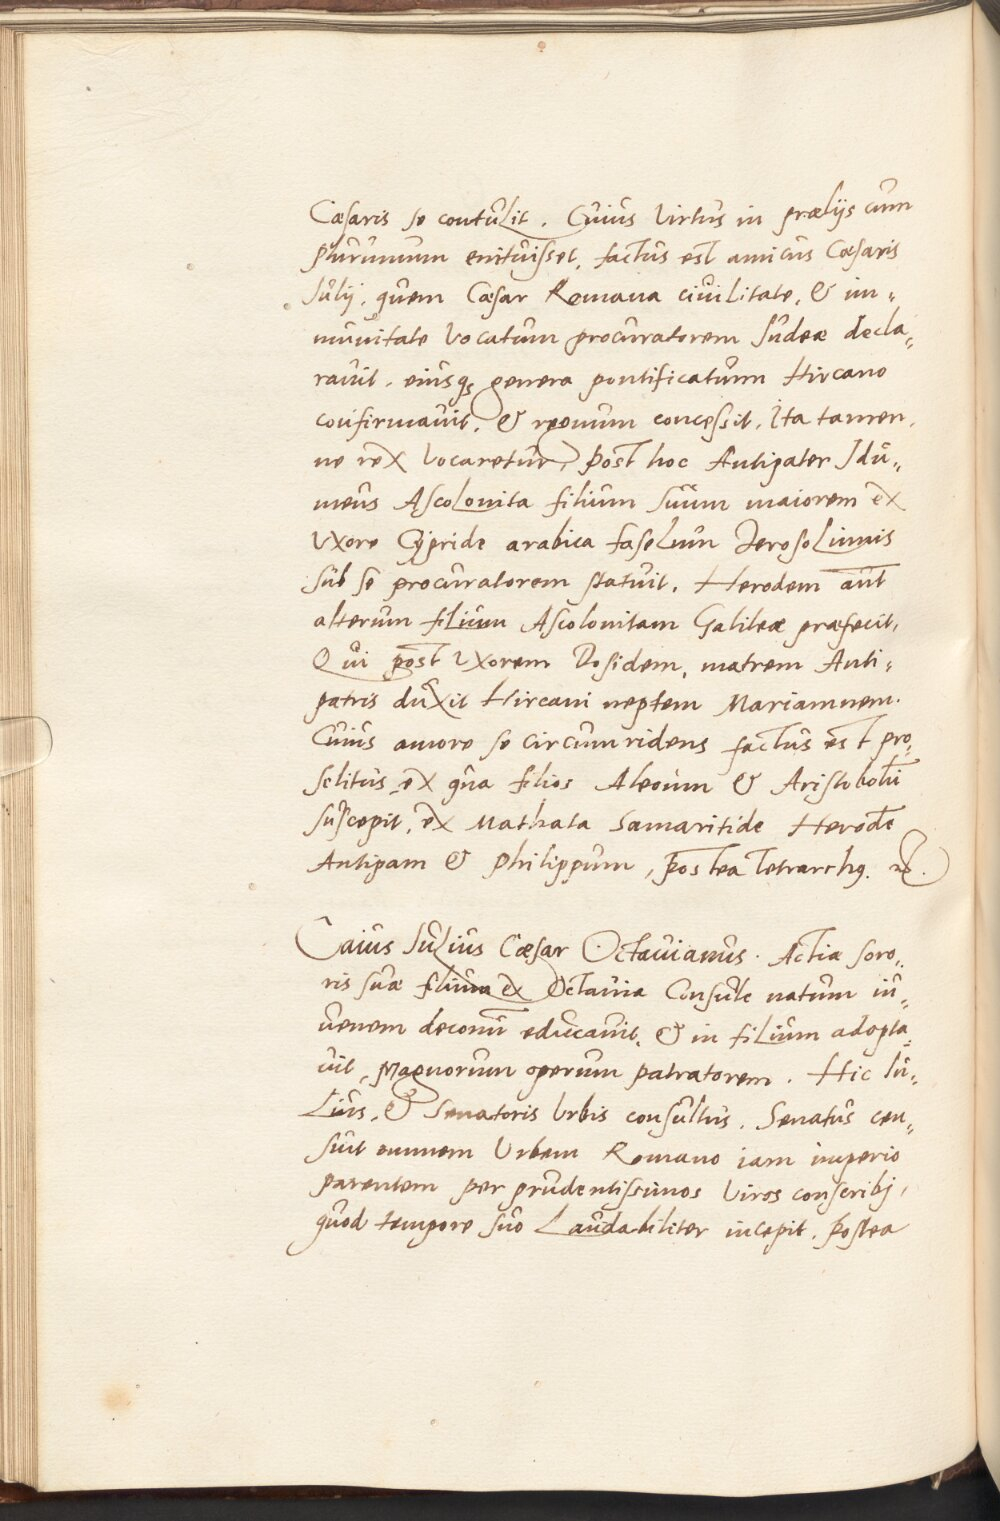 Cæsaris se contulit. Cuius virtus in prælijs cum
plurimum enituisset, factus est amicus Cæsaris
Iulij, quem Cæsar Romana ciuilitate, & im=
munitate vocatum procuratorem Iudeæ decla=
rauit. eiusq; genera pontificatum Hircano
confirmauit, & regnum concessit, Ita tamen,
ne rex vocaretur, post hoc Antipater Idu=
meus Ascolonita filium suum maiorem ex
vxore Cypride arabica faselum Ierosolimis
sub se procuratorem statuit. Herodem aut
alterum filium Ascolonitam Galileæ præfecit,
Qui post vxorem Dosidem, matrem Anti=
patris duxit Hircani neptem Mariamnem.
Cuius amore se circumridens factus est pro=
selitus, ex qua filios Aleoum & Aristobolu
suscepit, ex Mathata Samaritide Herode
Antipam & Philippum, postea Tetrarchq.
Caius Iulius Cæsar Octauianus. Actiæ soro=
ris suæ filium ex Octauia Consule natum iu=
uenem deconu educauit, & in filium adopta=
uit, Magnorum operum patratorem. Hic Iu=
lius, & Senatoris Vrbis consultus. Senatus cen=
suit omnem Vrbem Romano iam imperio
parentem per prudentissimos viros conscribj,
quod tempore suo Laudabiliter incepit. postea